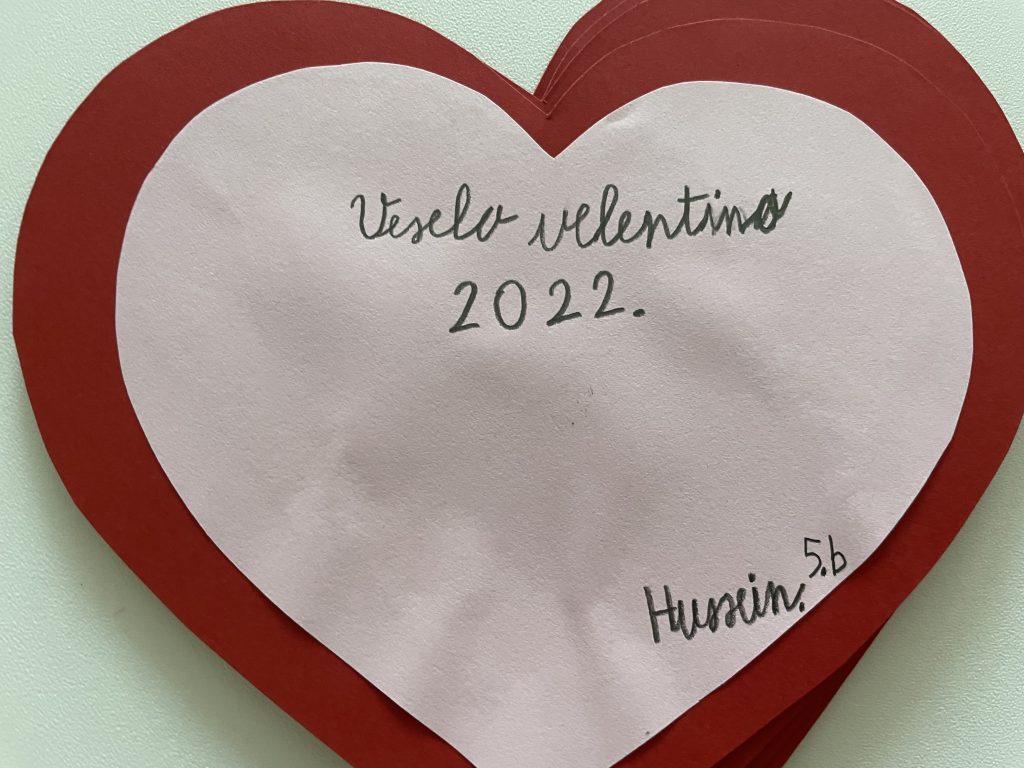 Veselo velentino
2022.
Hussein. 5.b